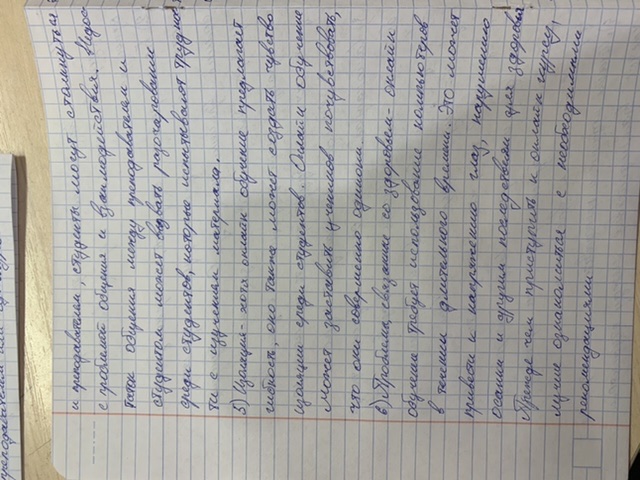 и преподаватели, студенты могут столкнуться
с проблемой общения и взаимодействия. Недос
таток общения между преподавателем и
студентом может вызвать разочарование
среди студентов, которые испытывают труднос
ти с изучением материала.
5) Изоляция - хоть онлайн обучение предлагает
гибкость, оно также может создать чувство
изоляции среди студентов. Онлайн обучение
может заставить учеников почувствовать,
что они совершенно одиноки.
6) Проблемы, связанные со здоровьем - онлайн
обучение требует использование компьютеров
в течении длительного времени. Это может
привести к напряжению глаз, нарушению
осанки и другим последствиям для здоровья
Прежде чем приступить к онлайн курсу,
лучше ознакомится с необходимыми
рекомендациями